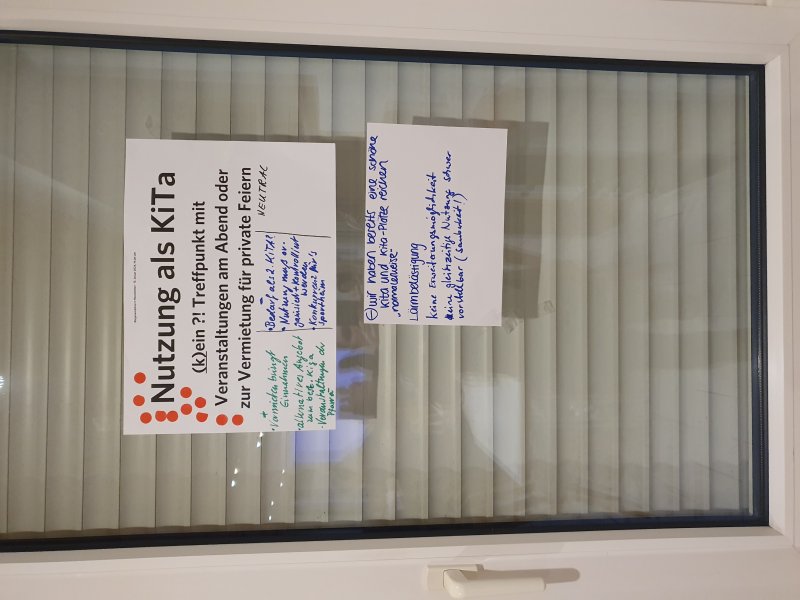 Nutzung als KiTa
(k)ein ?! Treffpunkt mit
Veranstaltungen am Abend oder
zur Vermietung für private Feiern
+
• Vermieten bringt
Einnahmen
• alternatives Angebot
zum best. Kiga
- Veranstaltungen d.
Pfarrei
-
• Bedarf als 2. KITA?
• Nutzung muß or-
ganisiert + kontrolliert
werden
• Konkurrenz für's
Sportheim
NEUTRAL
⊖ wir haben bereits eine schöne
Kita und Kita-Plätze reichen
"normalerweise"
Lärmbelästigung
Keine Erweiterungsmöglichkeit
keine gleichzeitige Nutzung schwer
vorstellbar (Sauberkeit!)